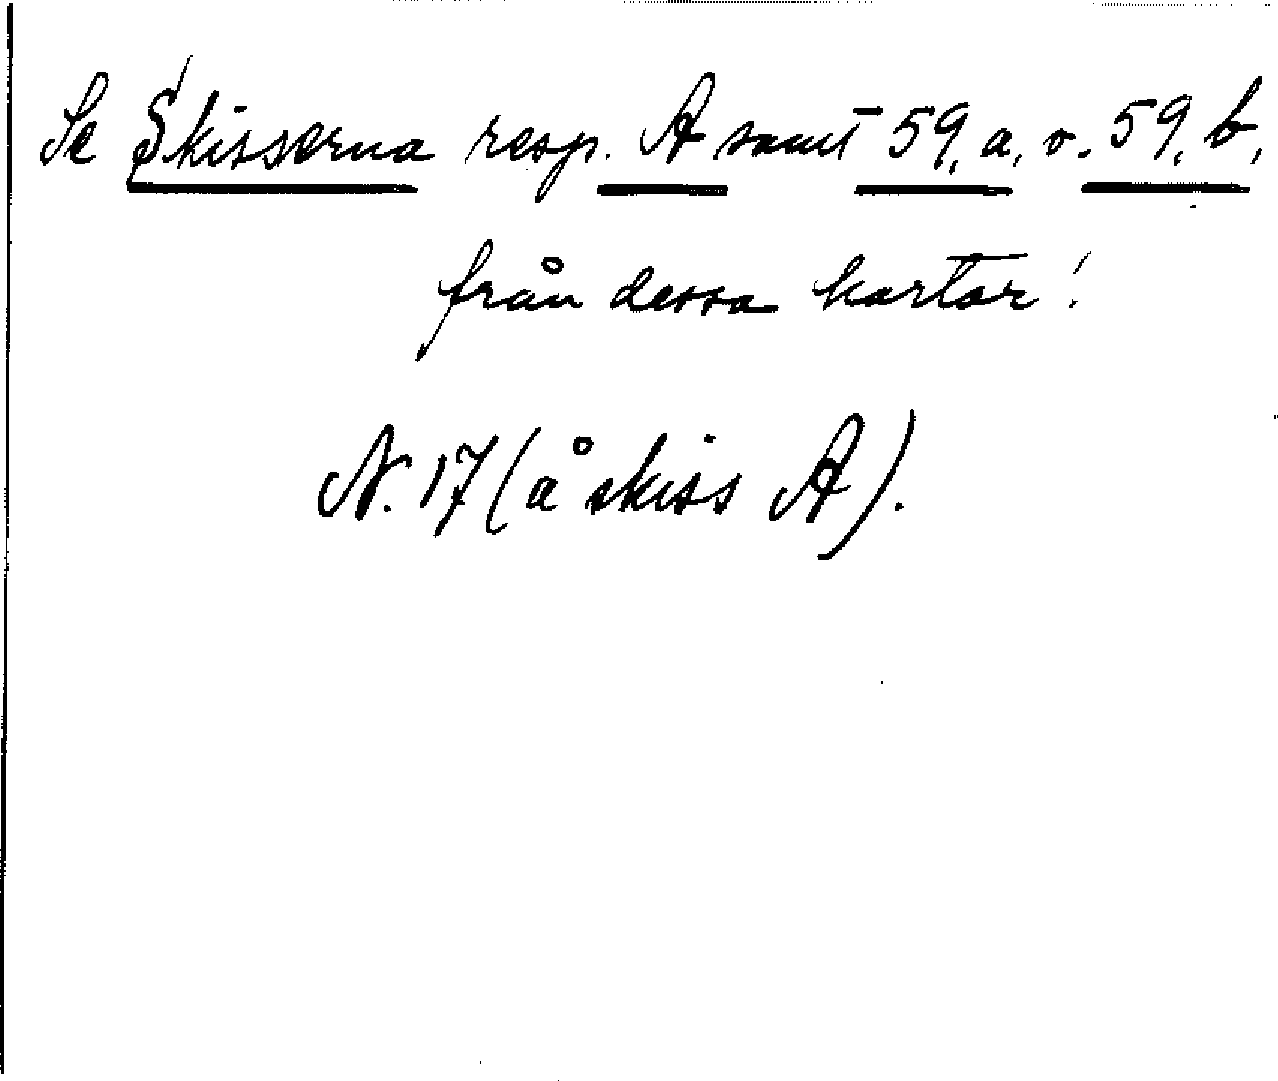 Se Skisserna resp. A samt 59, a, o. 59, b,
från dessa kartor!
N. 17 (å skiss A).